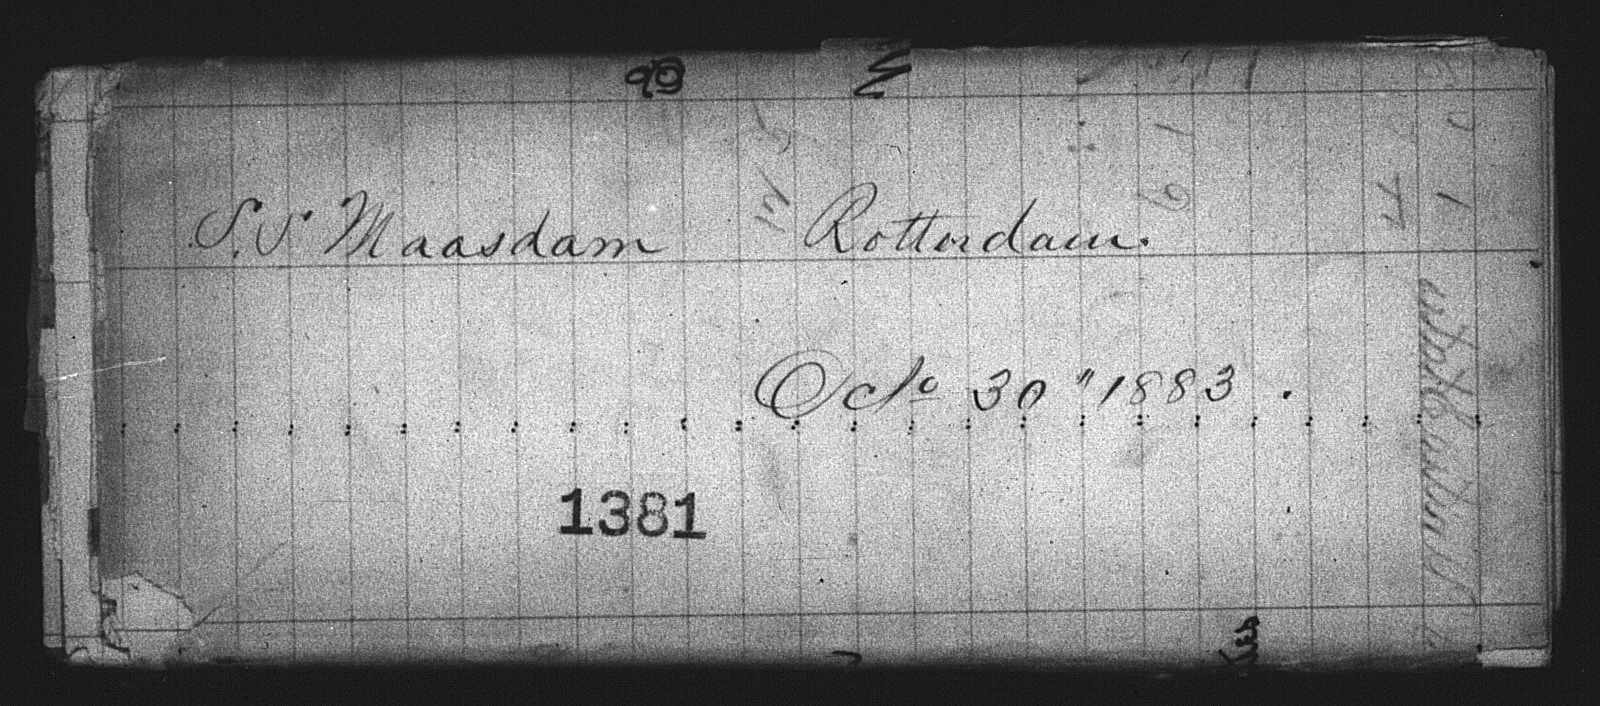 S.S Maasdam Rotterdam.
Octo 30" 1883.
1381